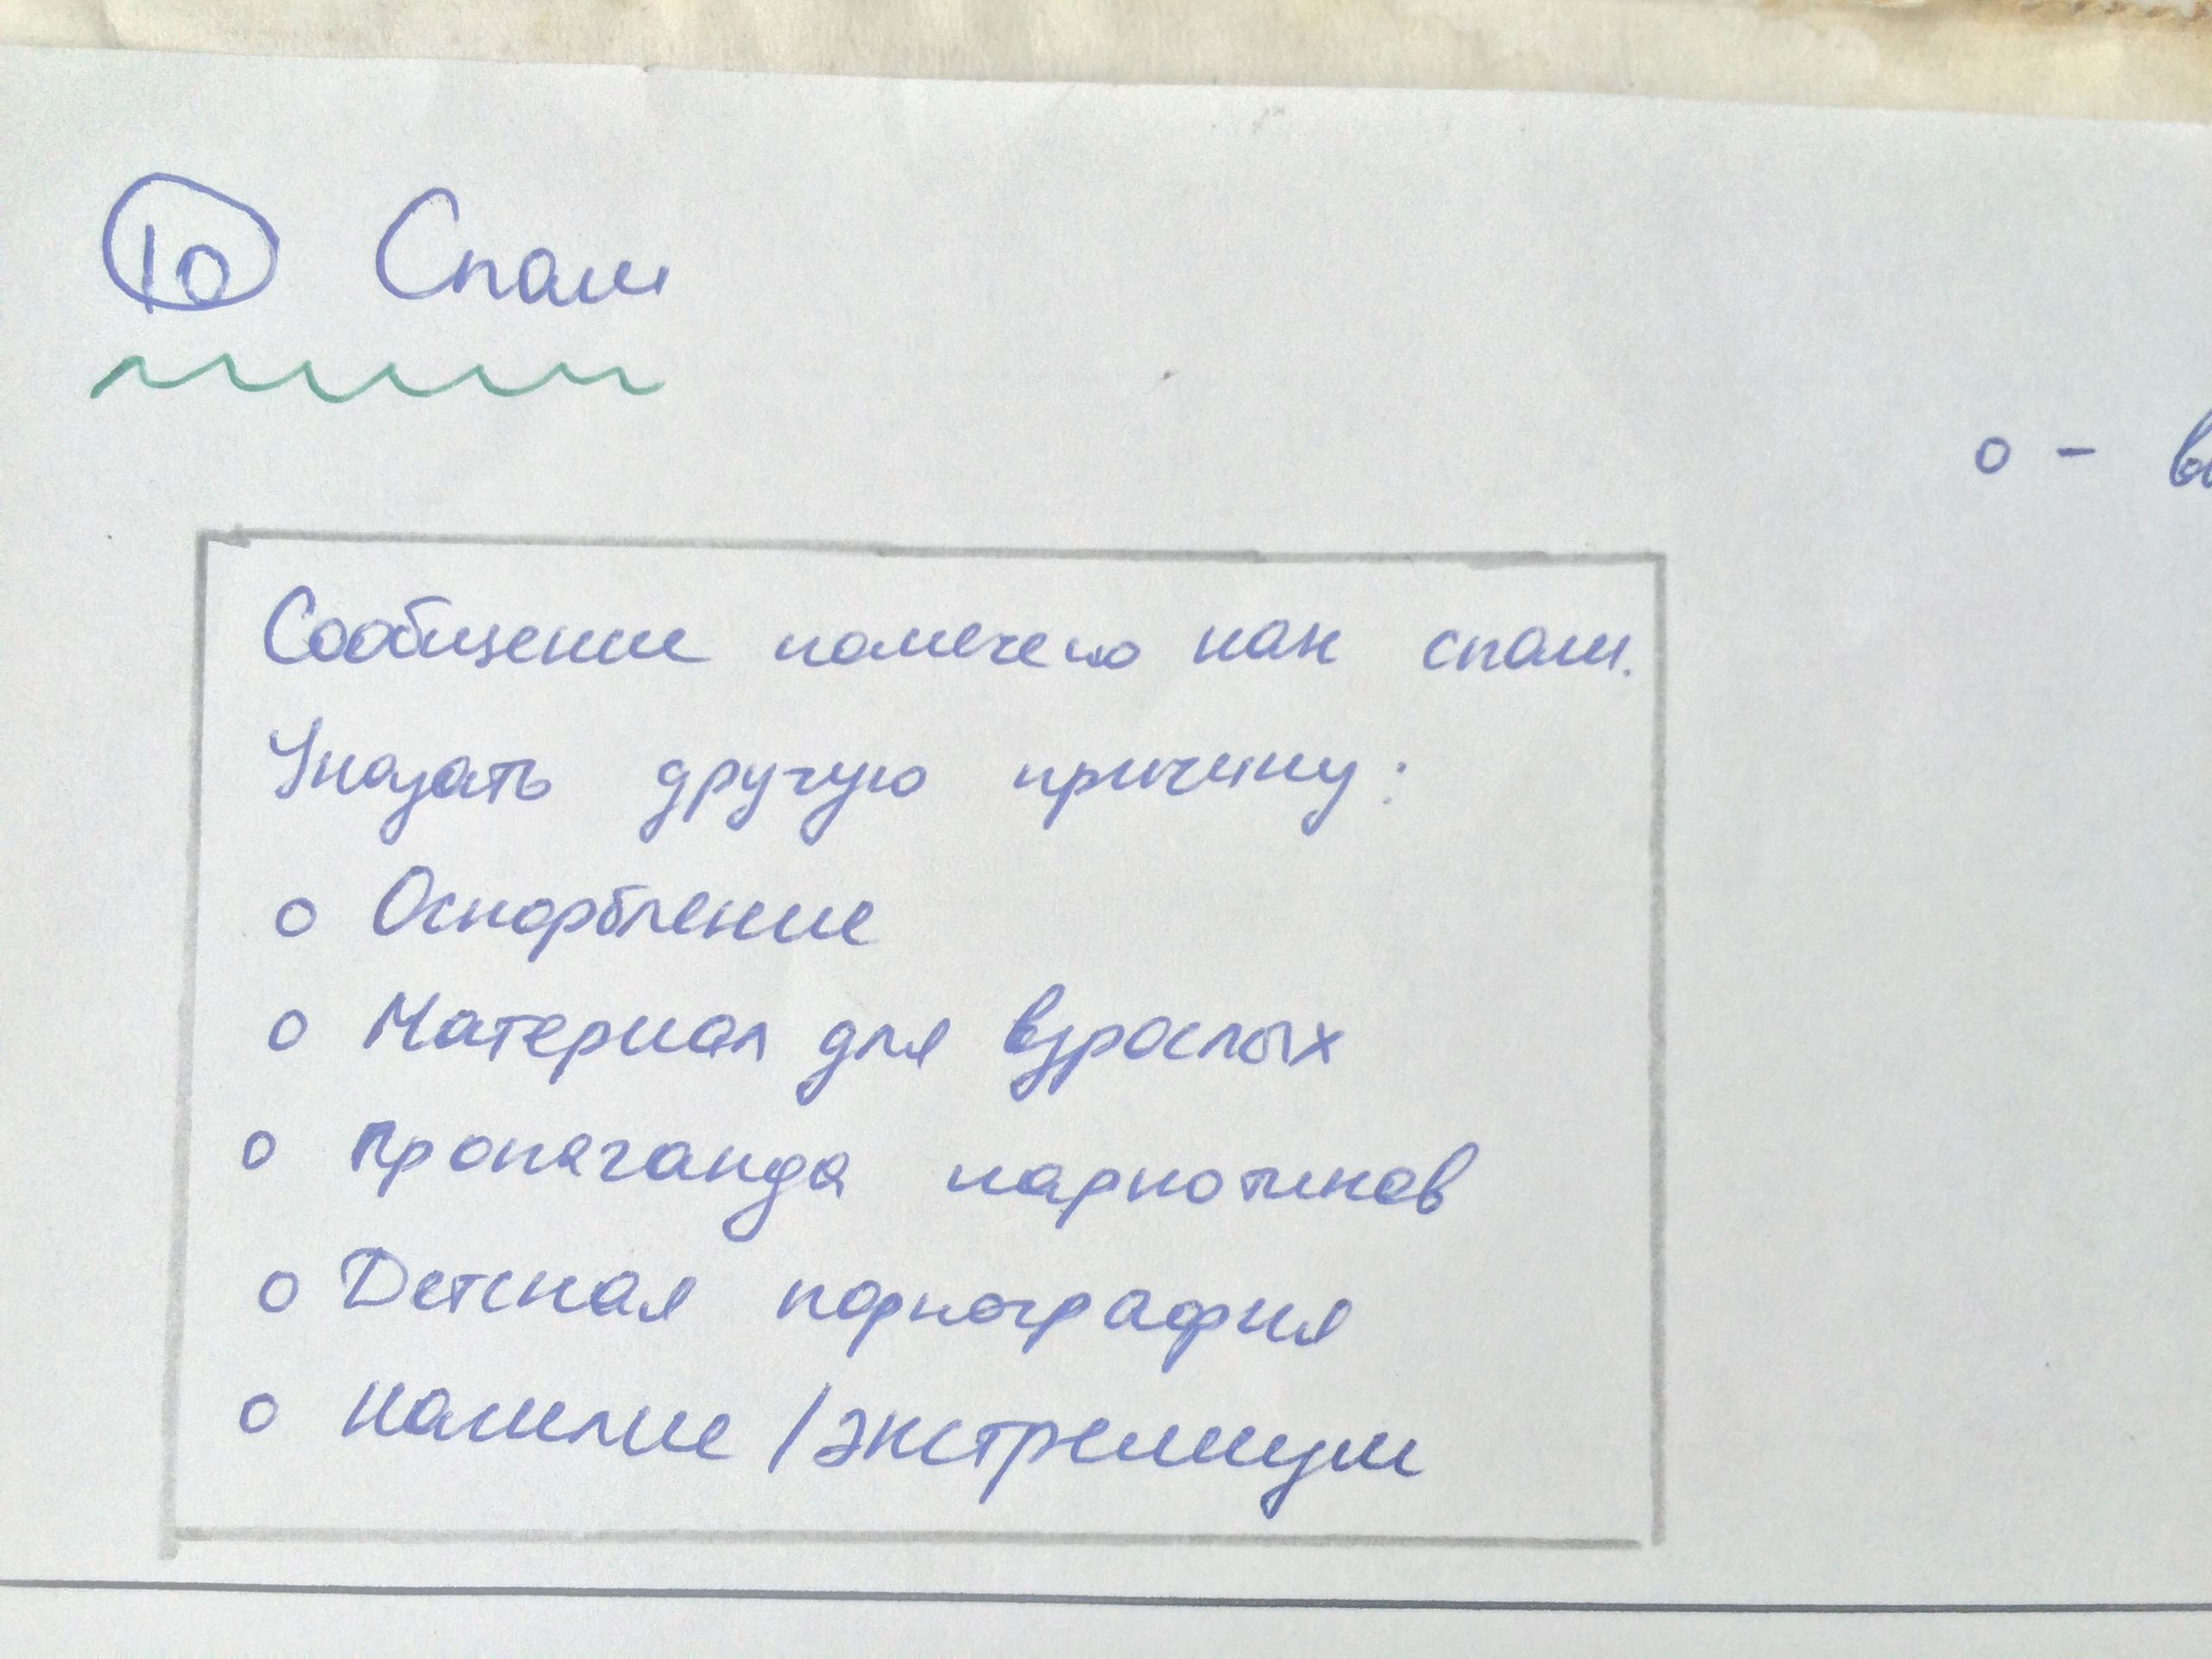 10 Спам
о - в
Сообщение помечено как спам.
Указать другую причину:
о Оскорбление
о Материал для взрослых
о Пропаганда наркотиков
о Детская порнография
о Насилие / экстремизм